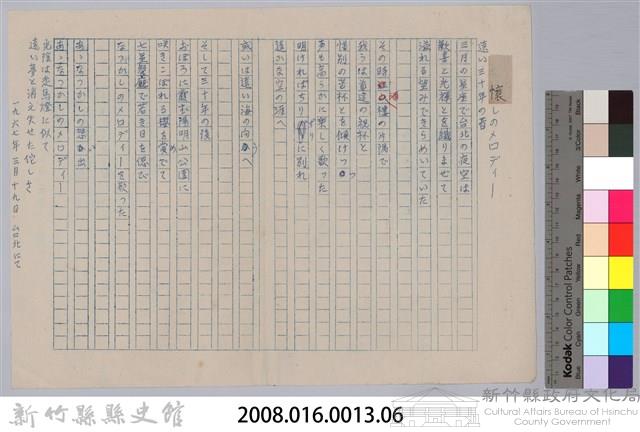 懐しのメロディー
遠い三十年の昔
三月の星座で台北の夜空は
歓喜と光輝とを織りまぜて
溢れる望みできらめいていた
その時 の片隅で
我らは首途の祝杯と
惜別の苦杯とを傾けつつ
声も高らかに楽しく歌った
明ければちりぢりに別れ
遥かな空の涯へ
或いは遠い海の向うへ
そして三十年の後
おぼろに霞む陽明山公園に
咲きこぼれる桜を賞でて
七星 で若き日を偲び
なつかしのメロディーを歌った
あゝなつかしの思い出
あゝなつかしのメロディー
光陰は走馬燈に似て
遠い夢と消え失せた佗しさ
一九六七年三月十九日 台北にて
新竹縣縣史館
2008.016.0013.06
新竹縣政府文化局
Cultural Affairs Bureau of Hsinchu
County Government
Kodak Color Control Patches
Blue
Cyan
Green
Yellow
Red
Magenta
White
3/Color
Black